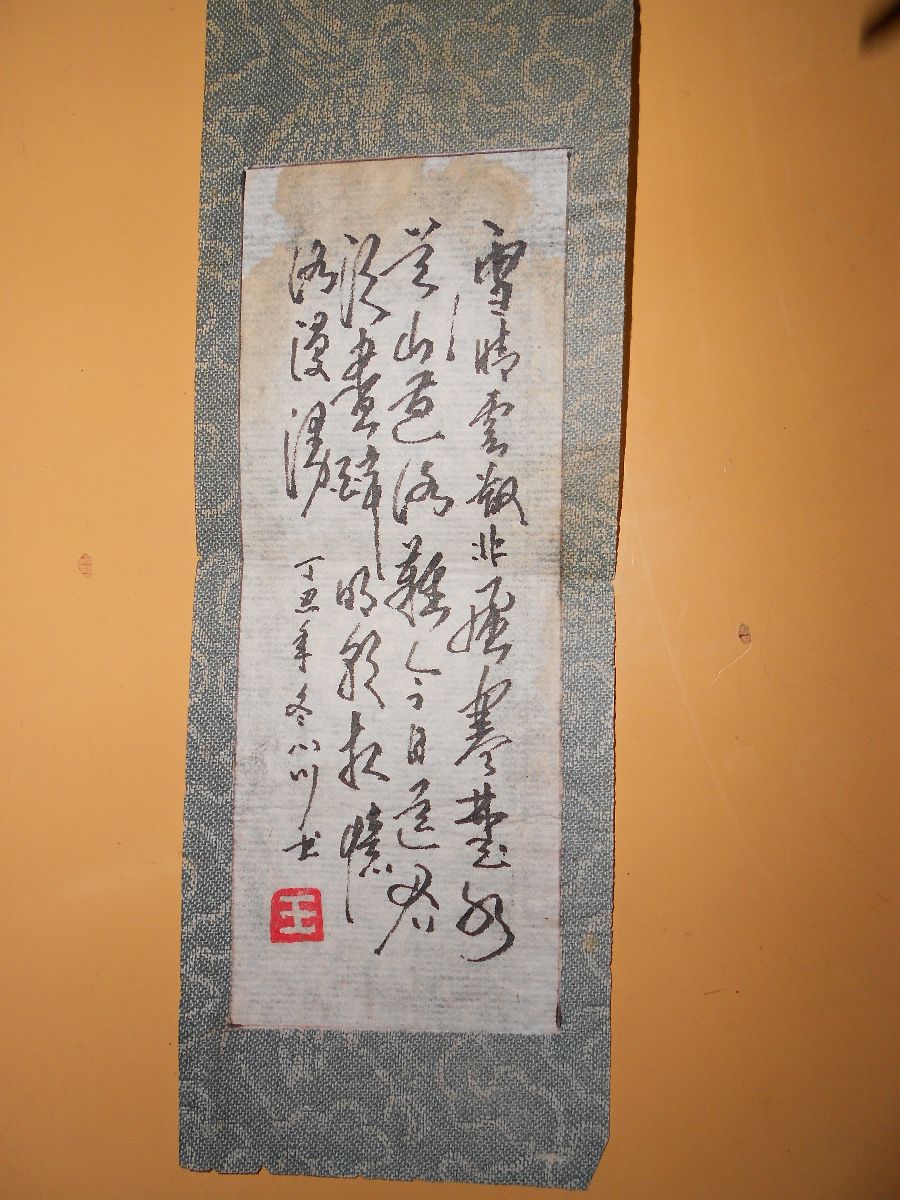 雪晴雲散北風寒楚水
吳山道路難今日送君
須盡醉明朝相憶
路漫漫
丁丑年冬小川书
王